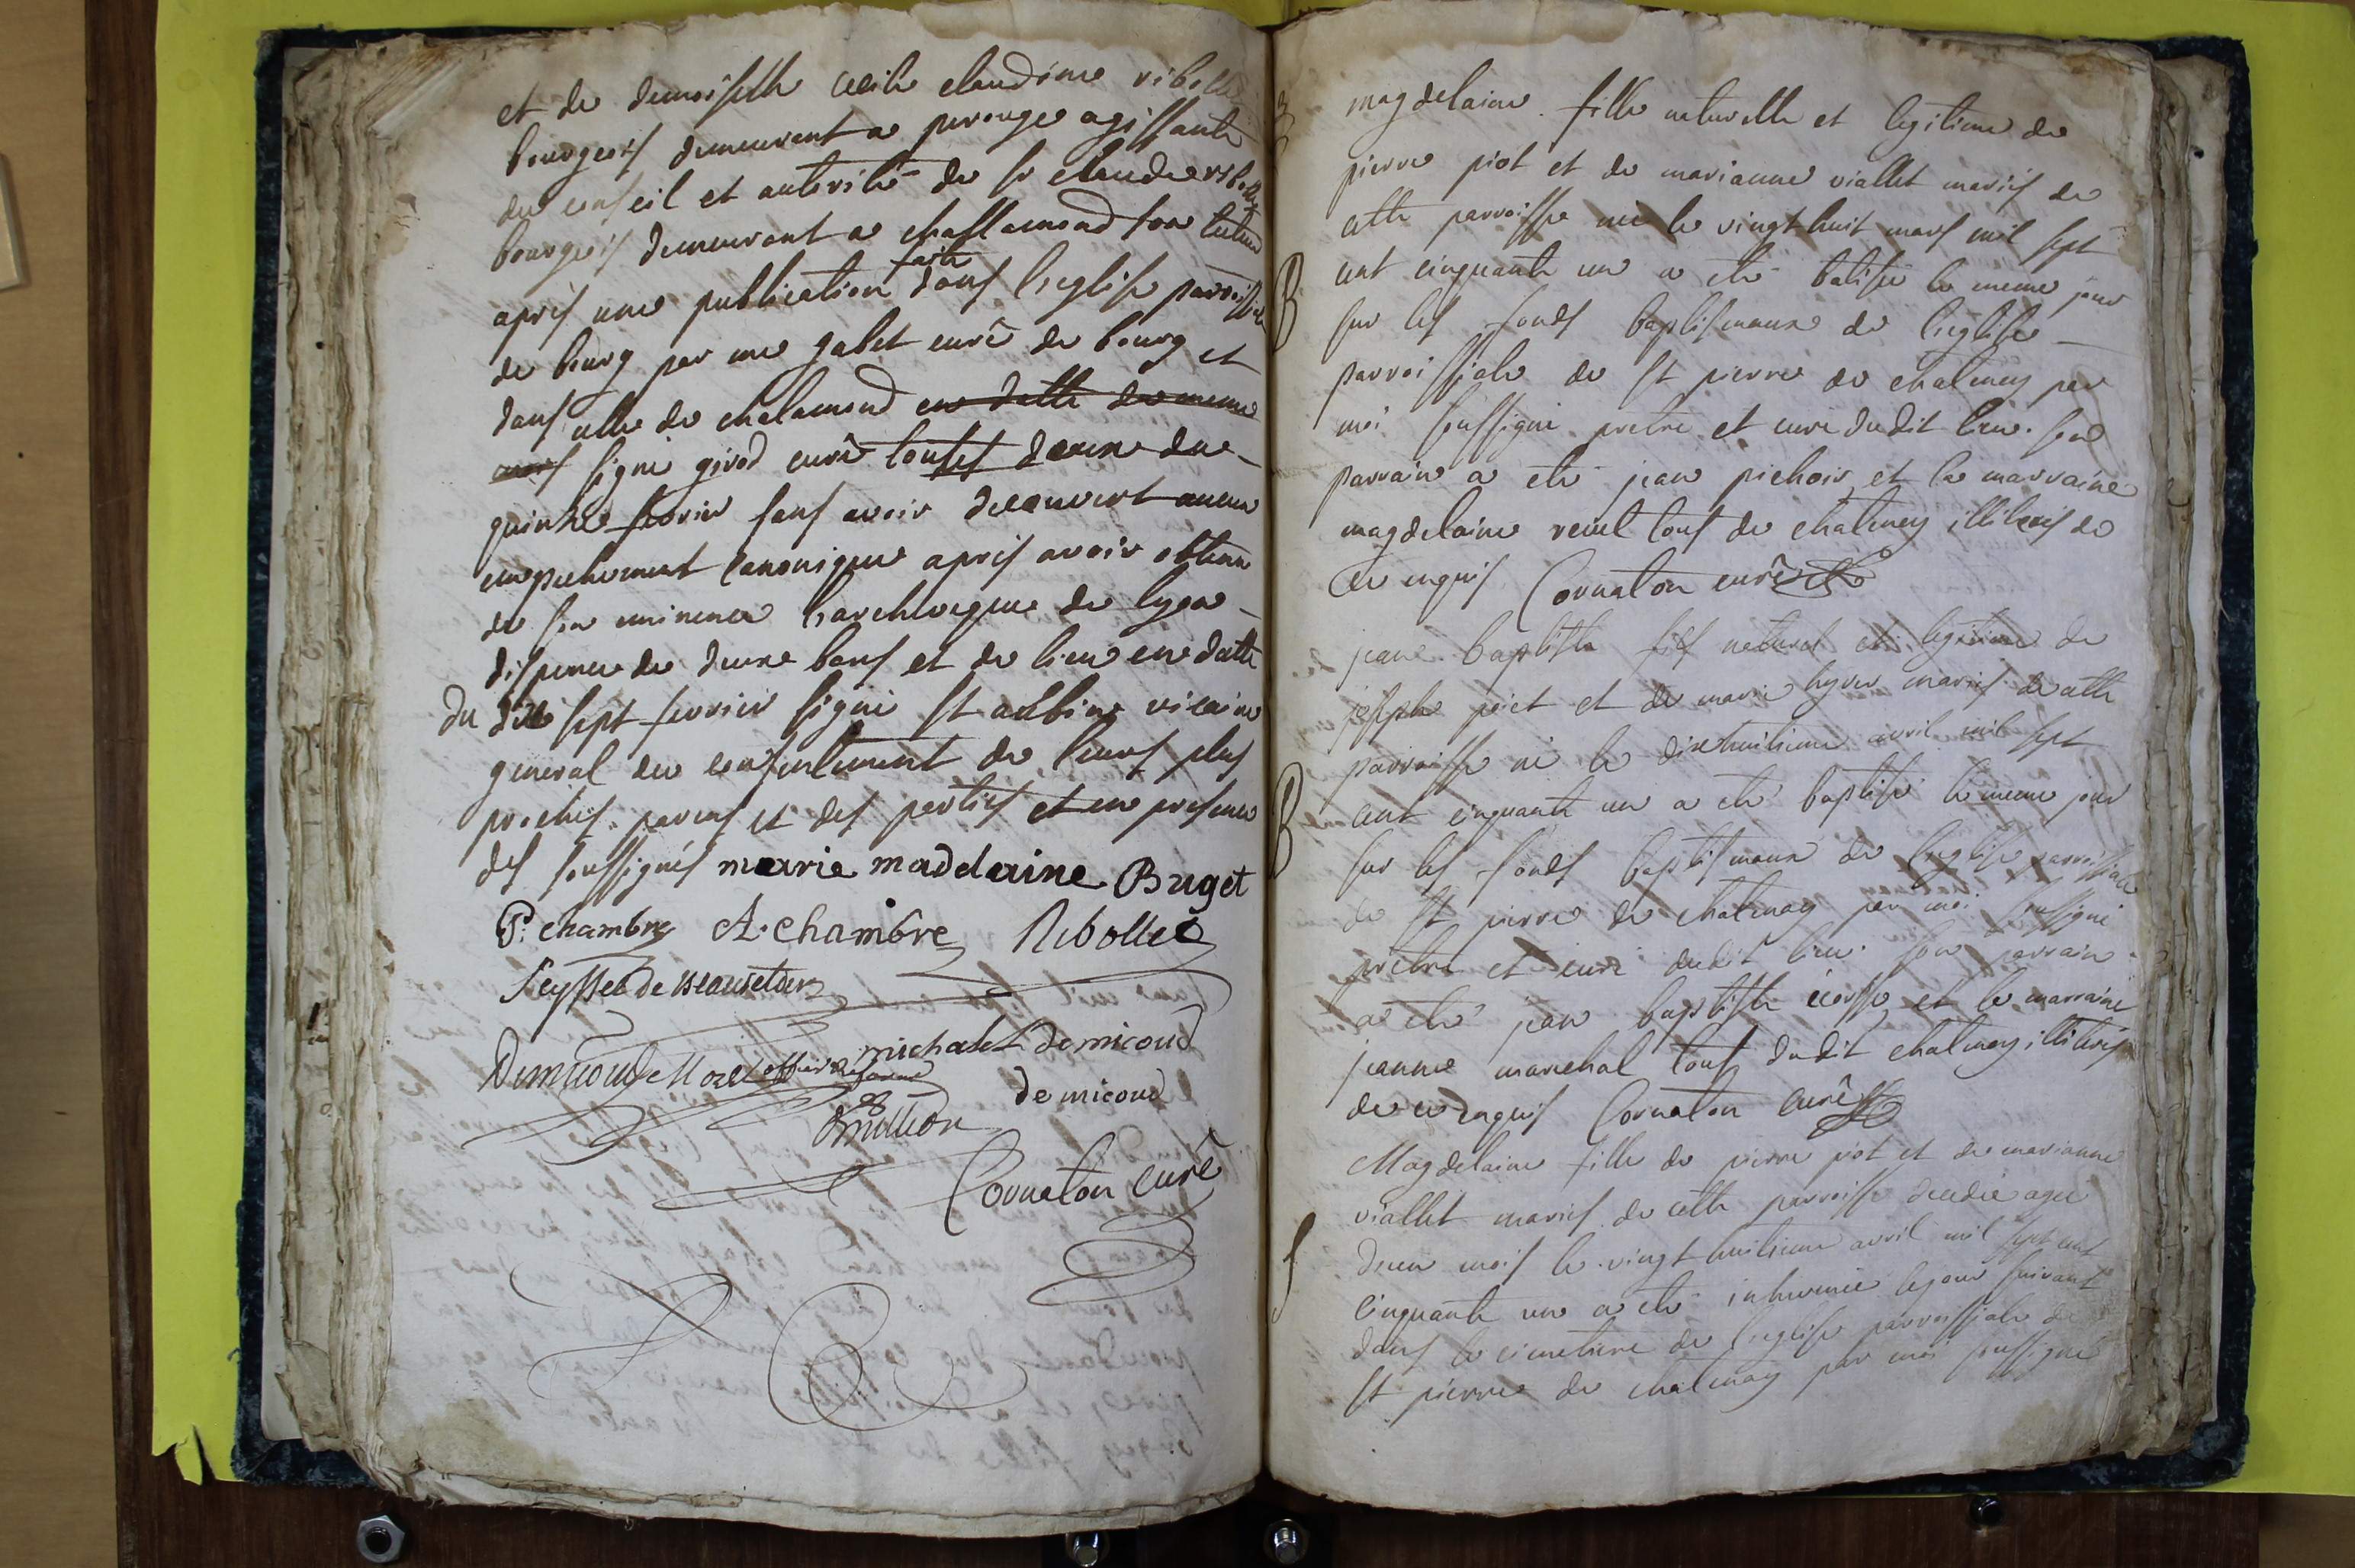 et de demoiselle cecile claudine ribollet
bourgeois demeurant a perouge agissante
du conseil et autorité de sr claude ribollet
bourgeois demeurant a challamond son tuteur
après une publication faite dans l'eglise parroissiale
de bourg par me gabet curé de bourg et
dans celle de chalamond en datte du meme
mois signé girod curé toutes deux du
quinze fevrier sans avoir decouvert aucun
empechement canonique apres avoir obtenu
de son eminence l'archeveque de lyon
dispence de deux bans et de lieu en datte
du dix sept fevrier signé st aubin vicaire
general du consentement de leurs plus
proches parens et des parties et en presence
des soussignés marie madelaine Buget
P. chambre A. chambre Ribollet
Seyssel de Beauretour
Demicoud Morel officier reformé michalet de micoud
de micoud
Cornaton curé
magdelaine fille naturelle et legitime de
pierre piot et de marianne viallet mariés de
cette parroisse née le vingt huit mars mil sept
cent cinquante un a été batisée le meme jour
B
sur les fonds baptismaux de l'eglise
parroissiale de st pierre de chaleney par
moi soussigné pretre et curé dudit lieu. son
parrain a été jean pichoir et la marraine
magdelaine revel tous de chaleney illiterés de
ce enquis Cornaton curé
jean baptiste fils naturel et legitime de
joseph piot et de marie hyver mariés de cette
parroisse né le dixhuitieme avril mil sept
B
cent cinquante un a été baptisé le meme jour
sur les fonds baptismaux de l'eglise parroissiale
de st pierre de chaleney par moi soussigné
pretre et curé dudit lieu. son parrain
a été jean baptiste ecossy et la marraine
jeanne marechal tous dudit chaleney illiterés
de ce enquis Cornaton curé
Magdelaine fille de pierre piot et de marianne
viallet mariés de cette parroisse decedée agée
d'un mois le vingt huitieme avril mil sept cent
S
cinquante un a été inhumée le jour suivant
dans le cimetiere de l'eglise parroissiale de
st pierre de chaleney par moi soussigné